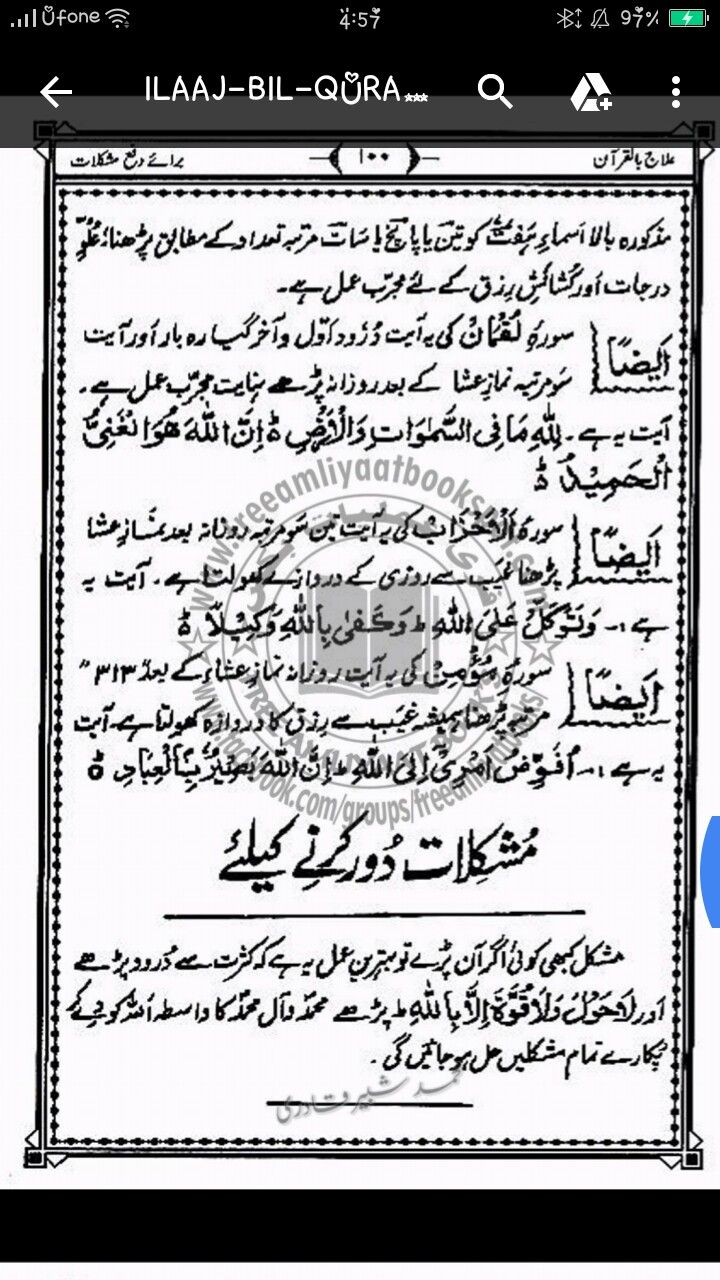 Ufone 4:57 97%
ILAAJ-BIL-QURA...
علاج بالقرآن ۱۰۰ برائے دفع مشکلات
مذکورہ بالا اسماءِ ہفت کو تین یا پانچ یا سات مرتبہ تعداد کے مطابق پڑھنا علوِّ
درجات اور کشائشِ رزق کے لئے مجرّب عمل ہے۔
ایضاً سورۂ لقمان کی یہ آیت دُرود اوّل و آخر گیارہ بار اور آیت
سَو مرتبہ نمازِ عشا کے بعد روزانہ پڑھے نہایت مجرّب عمل ہے۔
آیت یہ ہے۔ لِلّٰهِ مَا فِى السَّمٰوَاتِ وَالْاَرْضِ ؕ اِنَّ اللّٰهَ هُوَ الْغَنِىُّ
الْحَمِيْدُ ؕ
ایضاً سورۂ اَلْاَحْزَاب کی یہ آیت تین سو مرتبہ روزانہ بعد نمازِ عشا
پڑھنا غیب سے روزی کے دروازے کھولتا ہے۔ آیت یہ
ہے :۔ وَتَوَكَّلْ عَلَى اللّٰهِ ؕ وَكَفٰى بِاللّٰهِ وَكِيْلًا ؕ
ایضاً سورۂ مؤمن کی یہ آیت روزانہ نمازِ عشاء کے بعد ۳۱۳
مرتبہ پڑھنا ہمیشہ غیب سے رزق کا دروازہ کھولتا ہے۔ آیت
یہ ہے :۔ اُفَوِّضُ اَمْرِىْ اِلَى اللّٰهِ ؕ اِنَّ اللّٰهَ بَصِيْرٌۢ بِالْعِبَادِ ؕ
مُشکلات دُور کرنے کیلئے
مشکل کبھی کوئی اگر آن پڑے تو بہترین عمل یہ ہے کہ کثرت سے دُرود پڑھے
اور لَا حَوْلَ وَلَا قُوَّةَ اِلَّا بِاللّٰهِ ؕ پڑھے محمدؐ و آلِ محمدؐ کا واسطہ اللہ کو دے کے
پکارے تمام مشکلیں حل ہو جائیں گی۔
محمد شبیر قادری
www.freeamliyaatbooks
FREE AMLIYAAT BOOKS
www.facebook.com/groups/freeamliyatbooks/